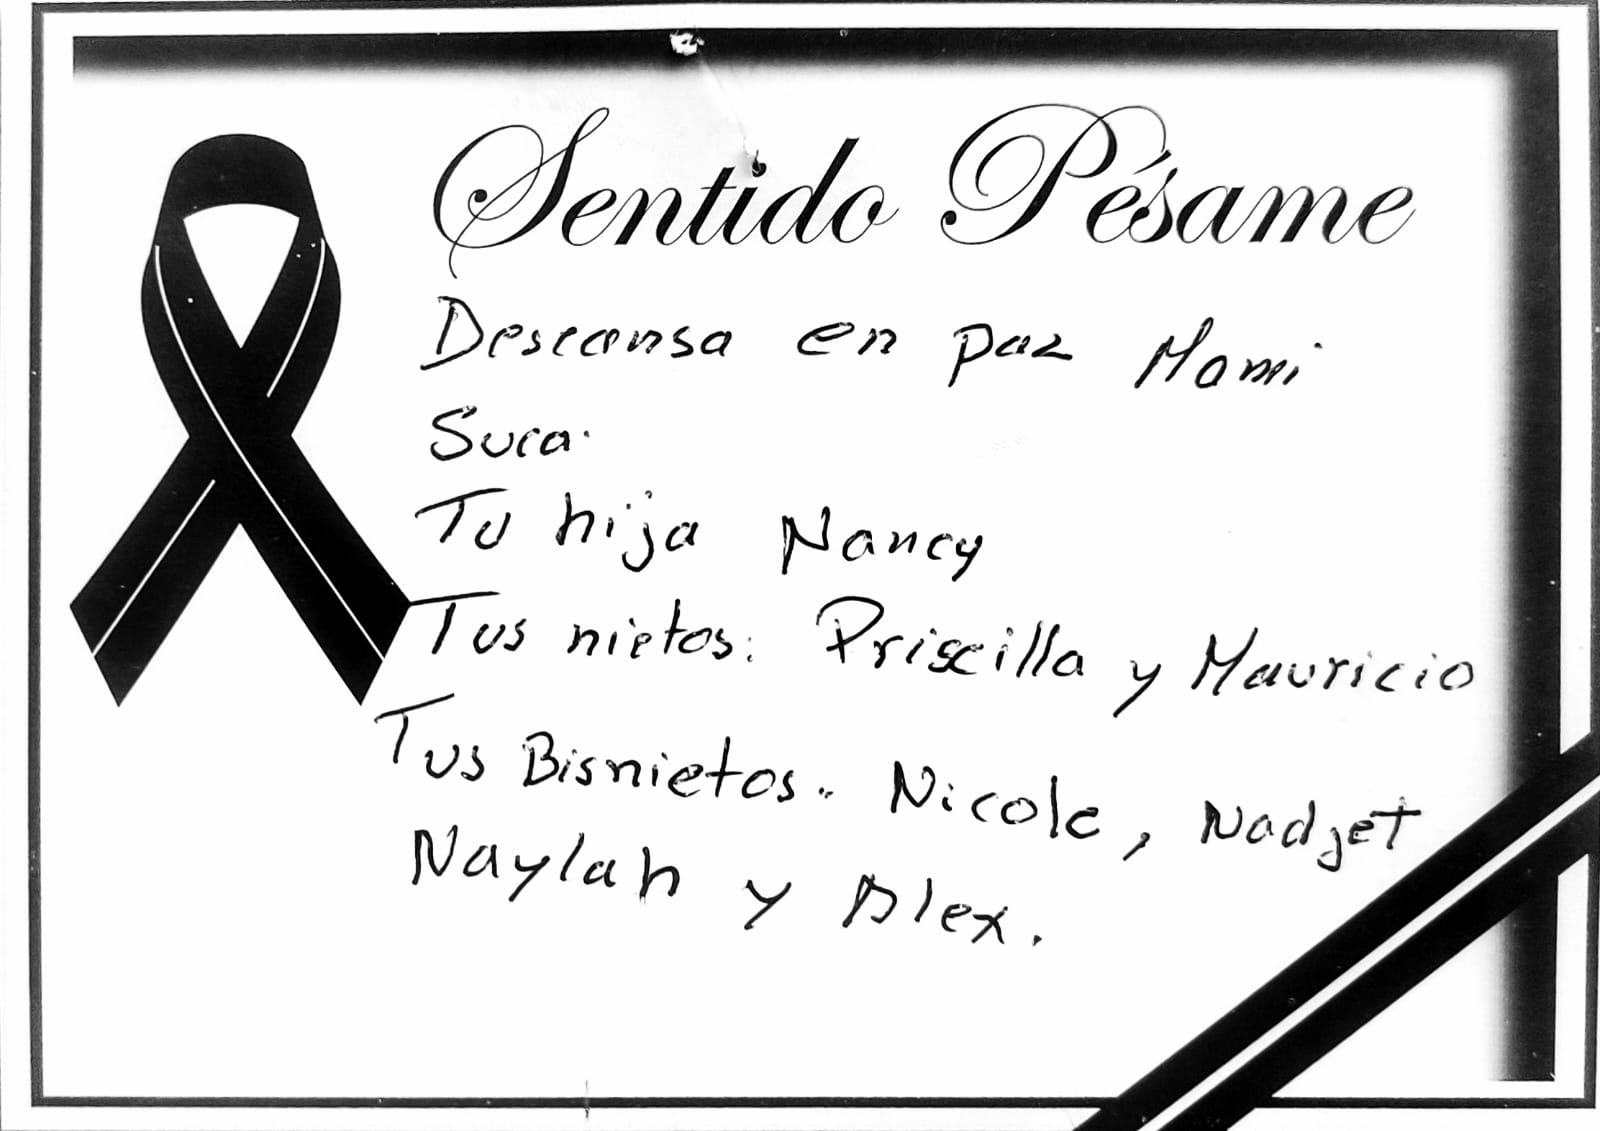 Sentido Pésame
Descansa en paz Mami
Suca.
Tu hija Nancy
Tus nietos: Priscilla y Mauricio
Tus Bisnietos.. Nicole, Nadjet
Naylah y Alex.